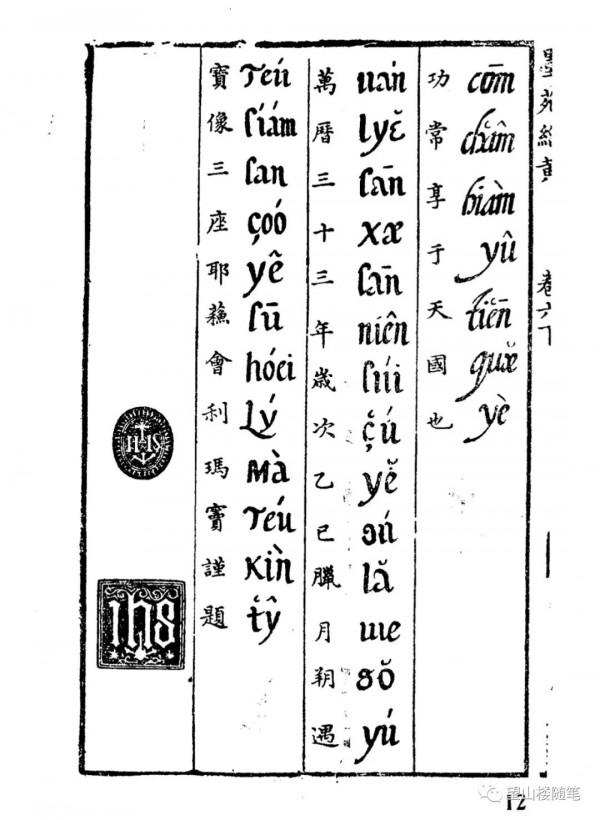 墨苑緇黃 卷六下
cōm châm hiàm yû tiēn quæ̆ yè
功常享于天國也
uán lyĕ ſān xæ ſān niên ſúi çú yĕ sú lă ue sŏ yú
萬曆三十三年歲次乙巳臘月朔遇
Teú ſiám ſan çoó yê ſū hóei Lý Mà Teú Kiǹ tŷ
寶像三座耶蘓會利瑪竇謹題
IHS
ihs
12
望山楼随笔